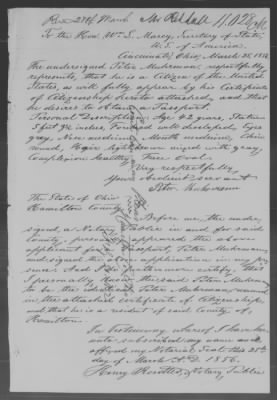 Rec 29th March
To the Hon. Wm. L. Marcy, Secretary of State,
U. S. of America.
Cincinnati, Ohio, March 25, 1856
The undersigned Peter respectfully
represents, that he is a Citizen of the United
States, as will fully appear by his Certificate
of Citizenship hereto attached, and that
he desires to obtain a Passport.
Personal Description: Age 42 years, Stature
5 feet 7½ inches, Forehead well developed, Eyes
gray, Nose medium, Mouth medium, Chin
round, Hair light brown mixed with gray,
Complexion healthy, Face Oval.
Very respectfully
Your obedient Servant
Peter
The State of Ohio
Hamilton County
Before me, the under-
signed, a Notary Public in and for said
County, personally appeared the above
applicant for a Passport, Peter
and signed the above application in my pre-
sence. And I do furthermore certify, that
I personally know the said Peter
to be the identical Peter named
in the attached certificate of Citizenship,
and that he is a resident of said County of
Hamilton.
In testimony whereof I have here-
unto subscribed my name and
affixed my Notarial Seal this 25th
day of March A.D. 1856.
Henry Notary Public